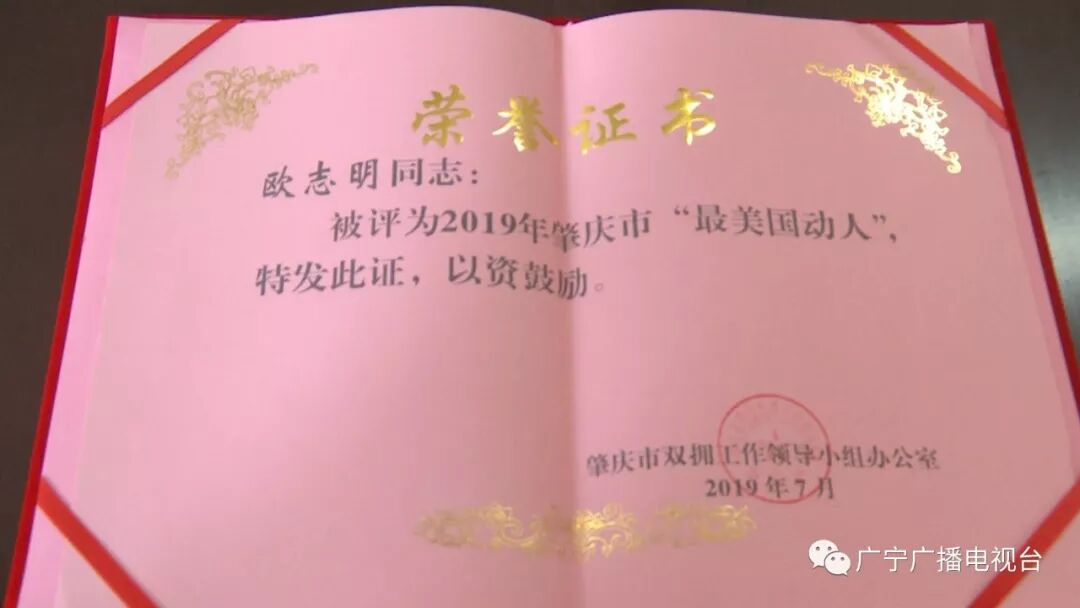 荣誉证书
欧志明同志：
被评为2019年肇庆市“最美国动人”，
特发此证，以资鼓励。
肇庆市双拥工作领导小组办公室
2019年7月
广宁广播电视台